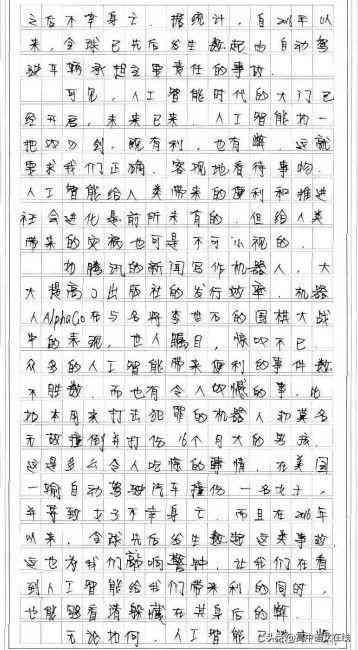 之后不幸身亡。据统计，自2016年以
来，全球已先后发生数起由自动驾
驶车辆承担主要责任的事故。
可见，人工智能时代的大门已
经开启，未来已来。人工智能如一
把双刃剑，既有利，也有弊，这就
要求我们正确、客观地看待事物。
人工智能给人类带来的便利和推进
社会进化是前所未有的，但给人类
带来的灾祸也可是不可小视的。
如腾讯的新闻写作机器人，大
大提高了出版社的发行效率，机器
人AlphaGo在与名将李世石的围棋大战
中的表现，世人瞩目，惊叹不已
众多的人工智能带来便利的事件数
不胜数，而也有令人叹憾的事，比
如本用来打击犯罪的机器人却莫名
无故撞倒并打伤16个月大的男孩，
这是多么令人吃惊的事情，在美国
一辆自动驾驶汽车撞伤一名女子，
并导致女子不幸身亡，而且在2016年
以来，全球先后发生数起这类事故
这也为我们敲响警钟，让我们在看
到人工智能给我们带来利的同时，
也能够看清躲藏在其身后的弊。
无论如何，人工智能已